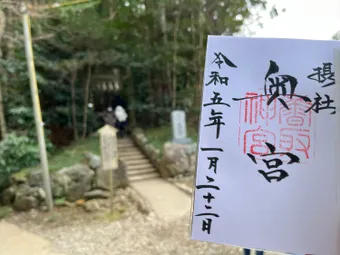 摂社
奥宮
鹿取
神宮
令和五年一月二十二日